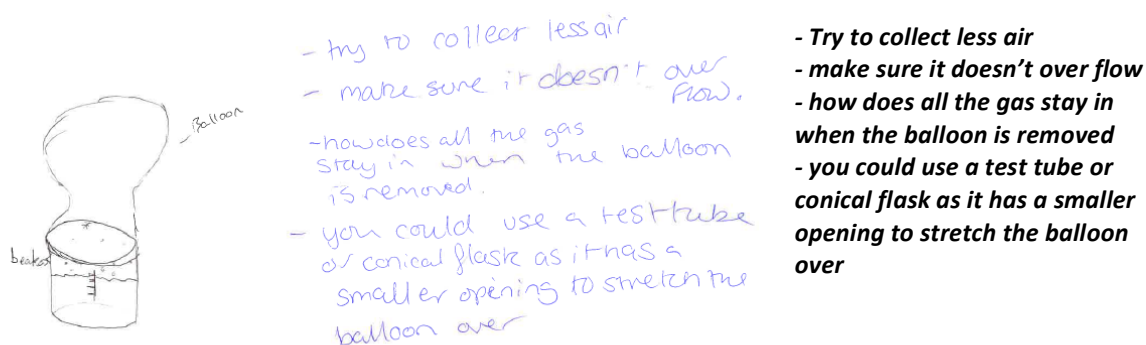 Balloon
beaker
- try to collect less air
- make sure it doesn't over
flow.
- how does all the gas
stay in when the balloon
is removed.
- you could use a test tube
or conical flask as it has a
smaller opening to stretch the
balloon over
- Try to collect less air
- make sure it doesn't over flow
- how does all the gas stay in
when the balloon is removed
- you could use a test tube or
conical flask as it has a smaller
opening to stretch the balloon
over